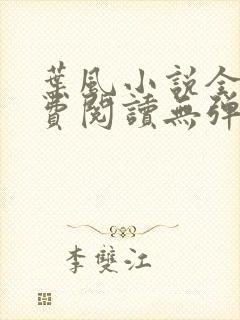 葉風小說全
費閱讀無彈
李雙江